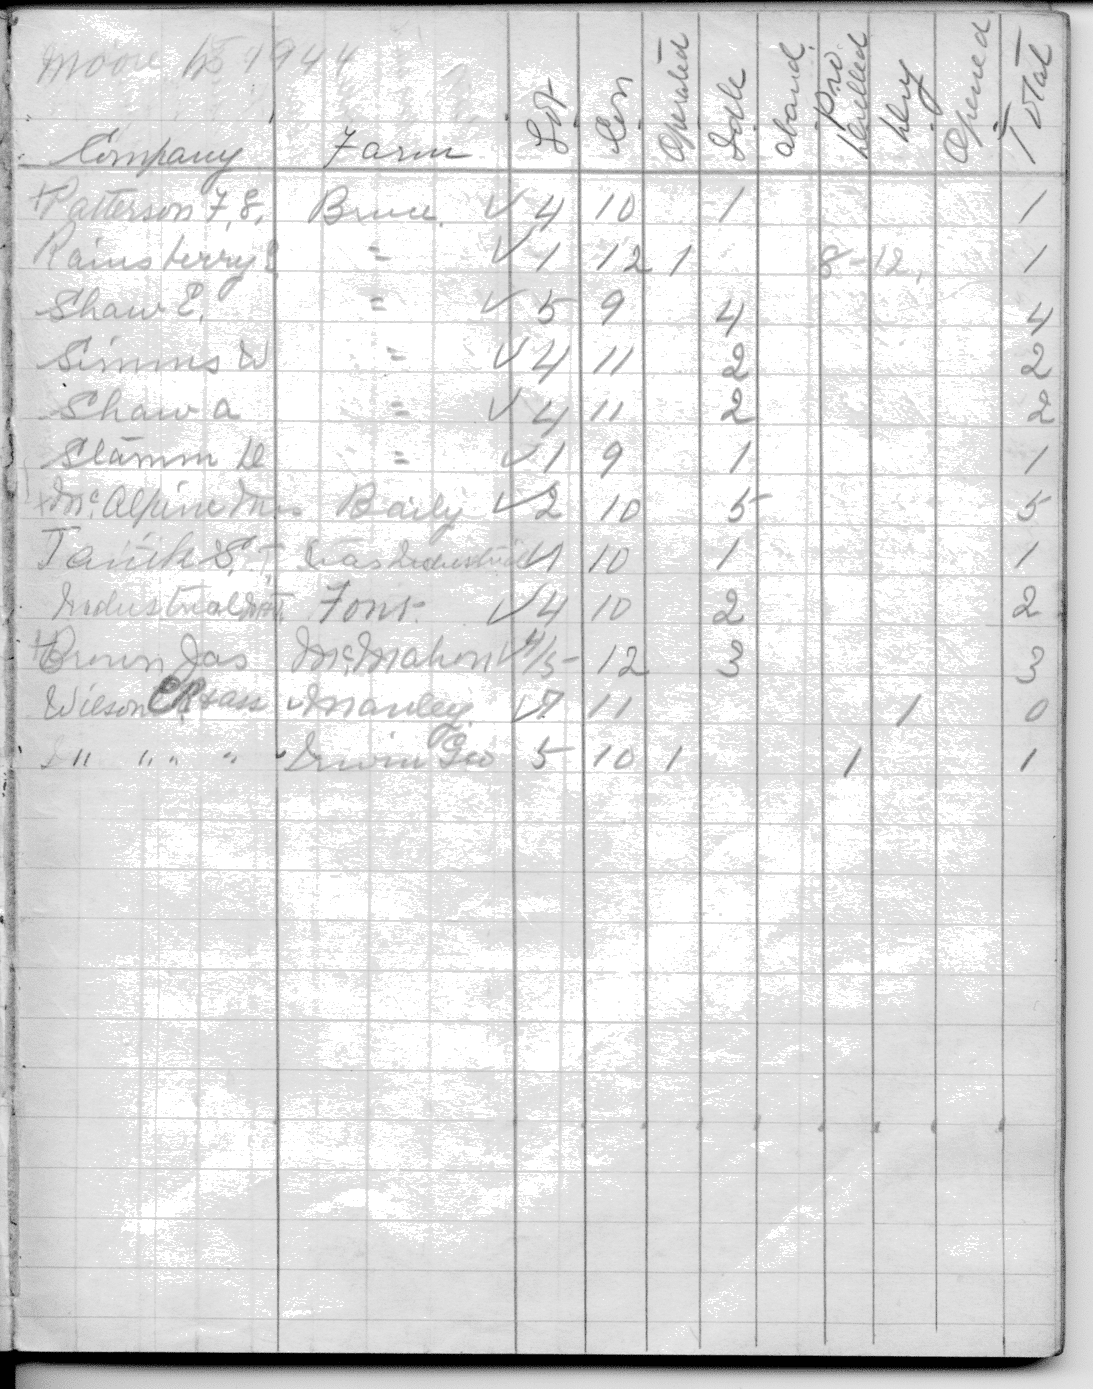 Moore 1944
Company Farm Lot Con Operated Idle aband. Pro Drilled Dry Opened Total
+Patterson F. E. Bruce ✓ 4 10 1 1
Rainsberry " ✓ 1 12 1 8-12. 1
Shaw E. " ✓ 5 9 4 4
Simms W " ✓ 4 11 2 2
Shaw a " ✓ 4 11 2 2
Stamm " ✓ 1 9 1 1
+McAlpine Mrs Baily ✓ 2 10 5 5
10 1 1
Industrial Font ✓ 4 10 2 2
+Brown Jas McMahon ✓ 4/5 12 3 3
Wilson Manley ✓ 7 11 1 0
" " " Irwin Geo 5 10 1 1 1